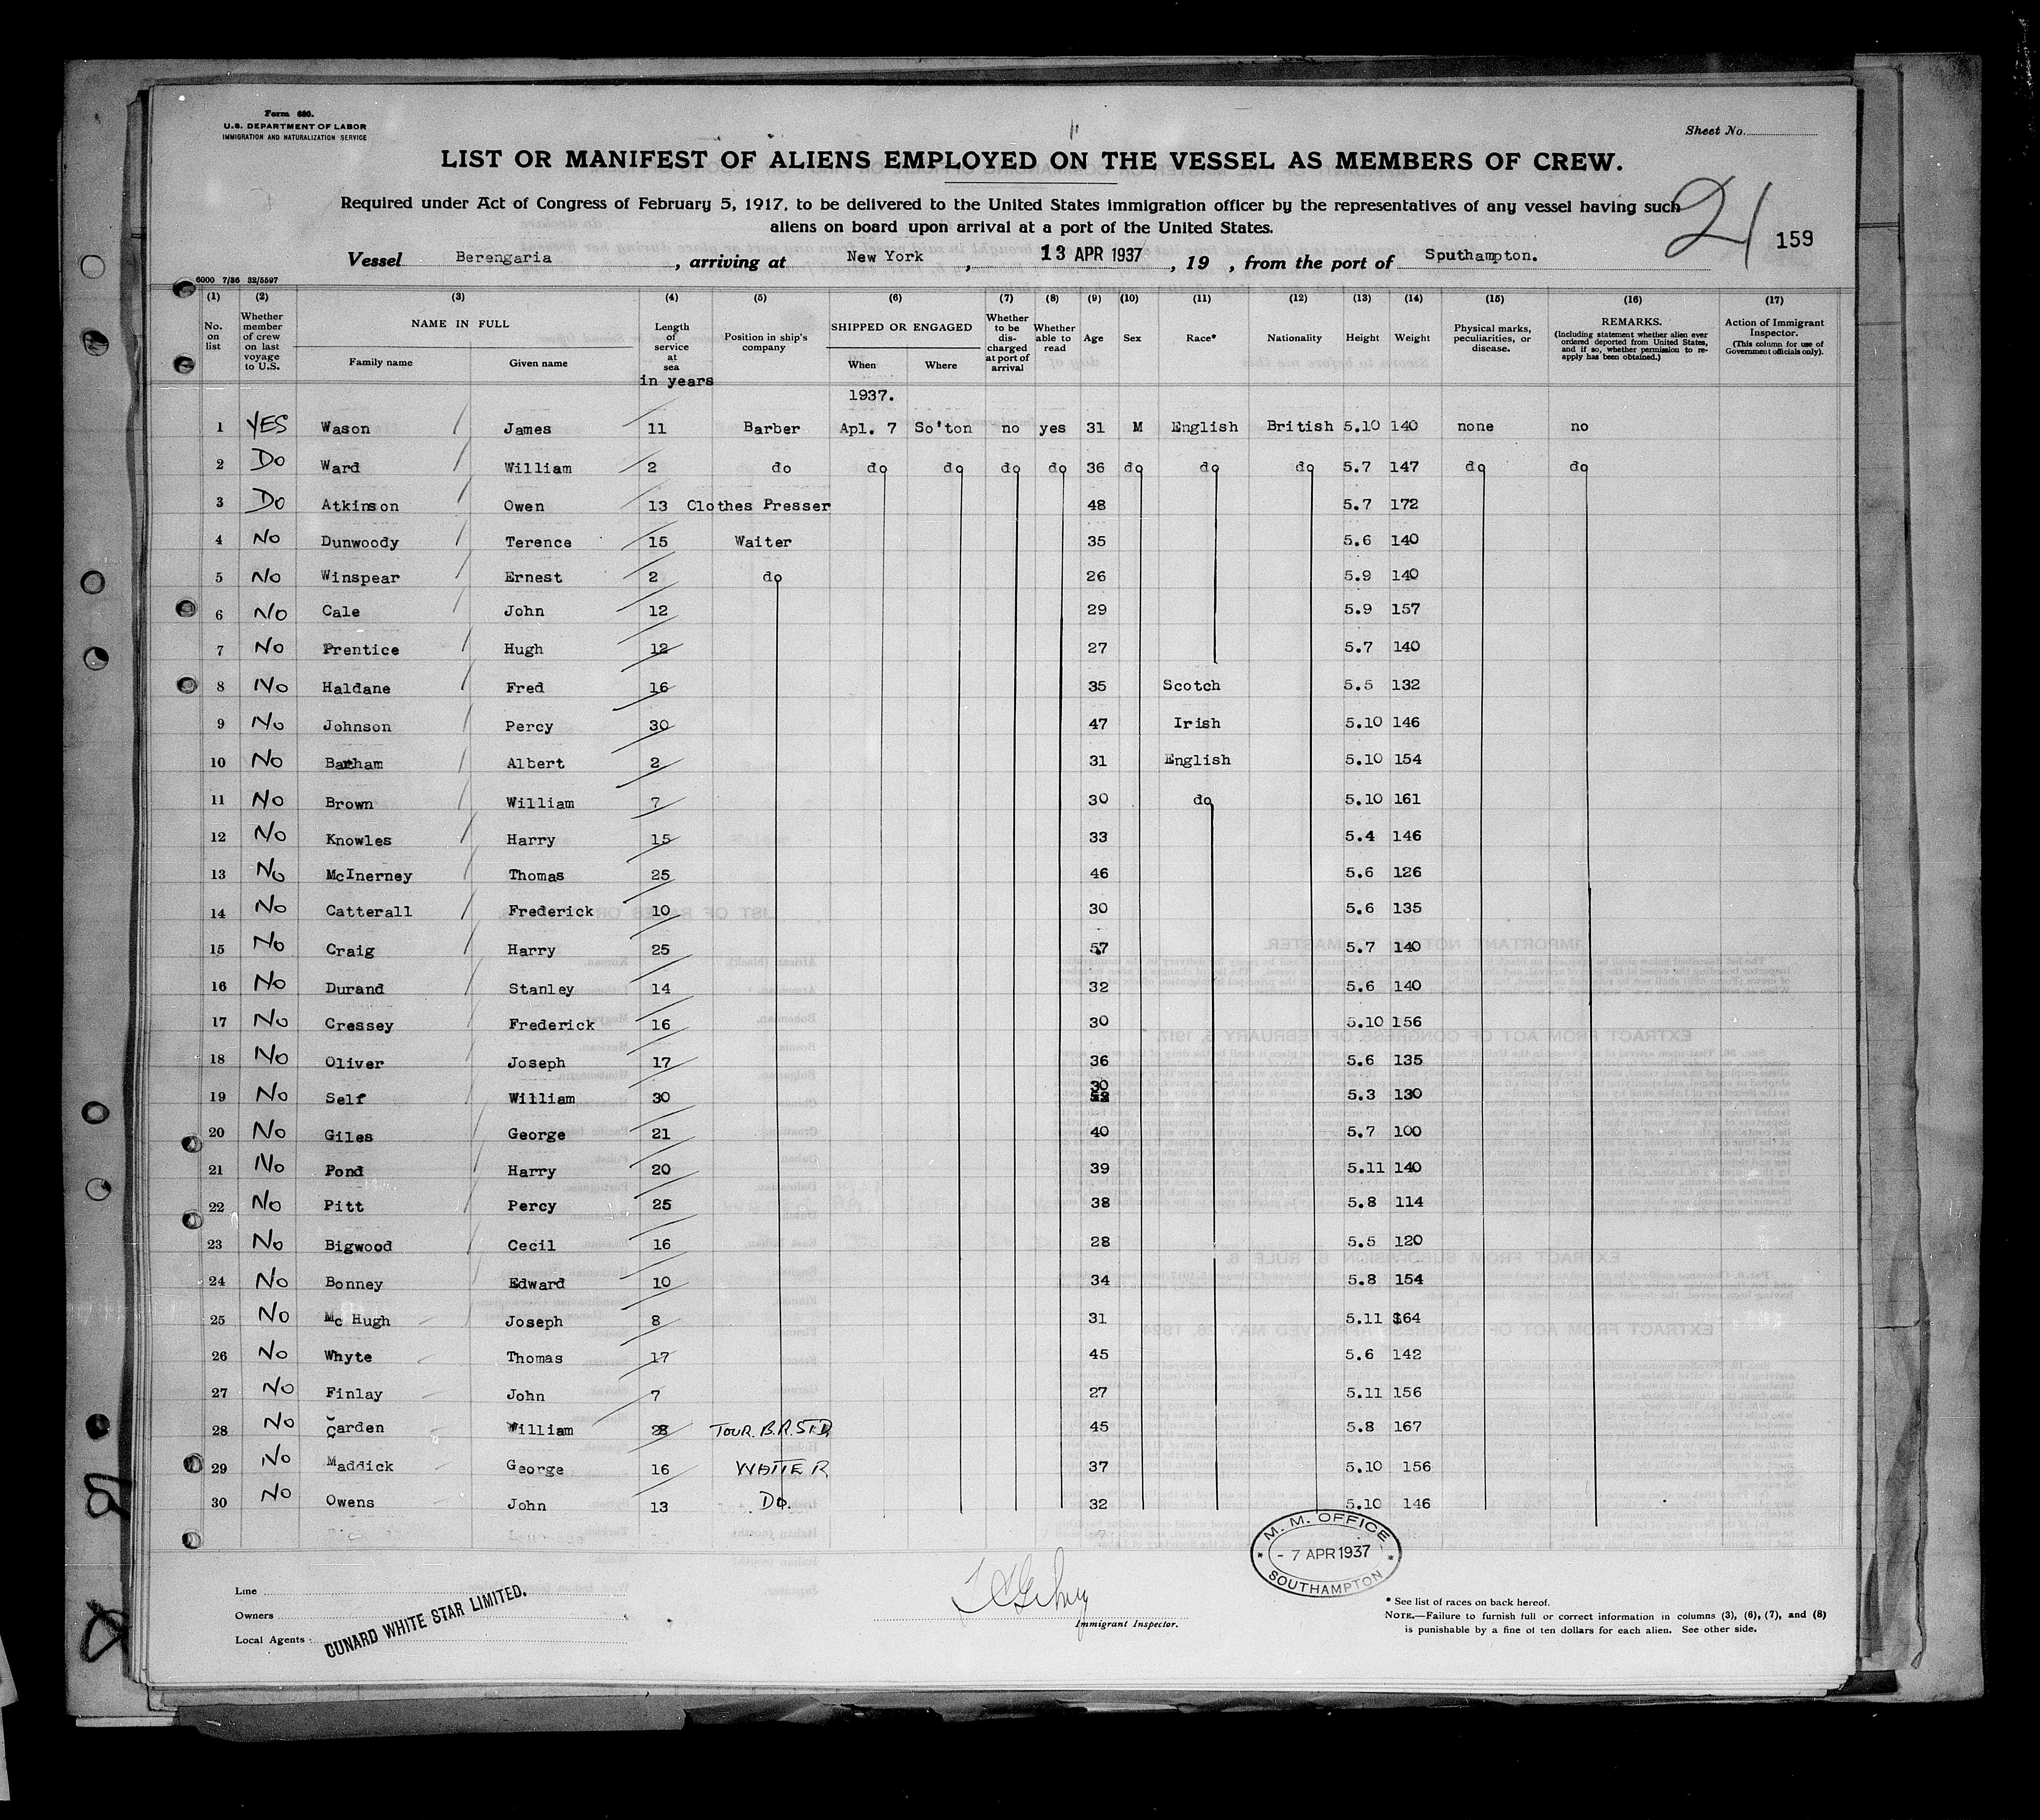 Form 680.
U.S. DEPARTMENT OF LABOR
IMMIGRATION AND NATURALIZATION SERVICE
Sheet No.
LIST OR MANIFEST OF ALIENS EMPLOYED ON THE VESSEL AS MEMBERS OF CREW.
Required under Act of Congress of February 5, 1917, to be delivered to the United States immigration officer by the representatives of any vessel having such
aliens on board upon arrival at a port of the United States.
21
159
Vessel Berengaria, arriving at New York, 13 APR 1937, 19 , from the port of Sputhampton.
6000 7/36 32/5597
(1) (2) (3) (4) (5) (6) (7) (8) (9) (10) (11) (12) (13) (14) (15) (16) (17)
No. on list
Whether member of crew on last voyage to U.S.
NAME IN FULL
Family name
Given name
Length of service at sea
in years
Position in ship's company
SHIPPED OR ENGAGED
When
Where
Whether to be discharged at port of arrival
Whether able to read
Age
Sex
Race*
Nationality
Height
Weight
Physical marks, peculiarities, or disease.
REMARKS.
(Including statement whether alien ever ordered deported from United States, and if so, whether permission to reapply has been obtained.)
Action of Immigrant Inspector.
(This column for use of Government officials only).
1937.
1 YES Wason James 11 Barber Apl. 7 So'ton no yes 31 M English British 5.10 140 none no
2 Do Ward William 2 do do do do do 36 do do do 5.7 147 do do
3 Do Atkinson Owen 13 Clothes Presser 48 5.7 172
4 No Dunwoody Terence 15 Waiter 35 5.6 140
5 No Winspear Ernest 2 do 26 5.9 140
6 No Cale John 12 29 5.9 157
7 No Prentice Hugh 12 27 5.7 140
8 No Haldane Fred 16 35 Scotch 5.5 132
9 No Johnson Percy 30 47 Irish 5.10 146
10 No Albert 2 31 English 5.10 154
11 No Brown William 7 30 do 5.10 161
12 No Knowles Harry 15 33 5.4 146
13 No McInerney Thomas 25 46 5.6 126
14 No Catterall Frederick 10 30 5.6 135
15 No Craig Harry 25 57 5.7 140
16 No Durand Stanley 14 32 5.6 140
17 No Cressey Frederick 16 30 5.10 156
18 No Oliver Joseph 17 36 5.6 135
19 No Self William 30 30 5.3 130
20 No Giles George 21 40 5.7 100
21 No Pond Harry 20 39 5.11 140
22 No Pitt Percy 25 38 5.8 114
23 No Bigwood Cecil 16 28 5.5 120
24 No Bonney Edward 10 34 5.8 154
25 No Mc Hugh Joseph 8 31 5.11 164
26 No Whyte Thomas 17 45 5.6 142
27 No Finlay John 7 27 5.11 156
28 No Carden William 28 TOUR. B.R. STD. 45 5.8 167
29 No Maddick George 16 WAITER 37 5.10 156
30 No Owens John 13 Do. 32 5.10 146
M. M. OFFICE
- 7 APR 1937 -
SOUTHAMPTON
Line
Owners
Local Agents
CUNARD WHITE STAR LIMITED.
Immigrant Inspector.
* See list of races on back hereof.
NOTE.—Failure to furnish full or correct information in columns (3), (6), (7), and (8)
is punishable by a fine of ten dollars for each alien. See other side.